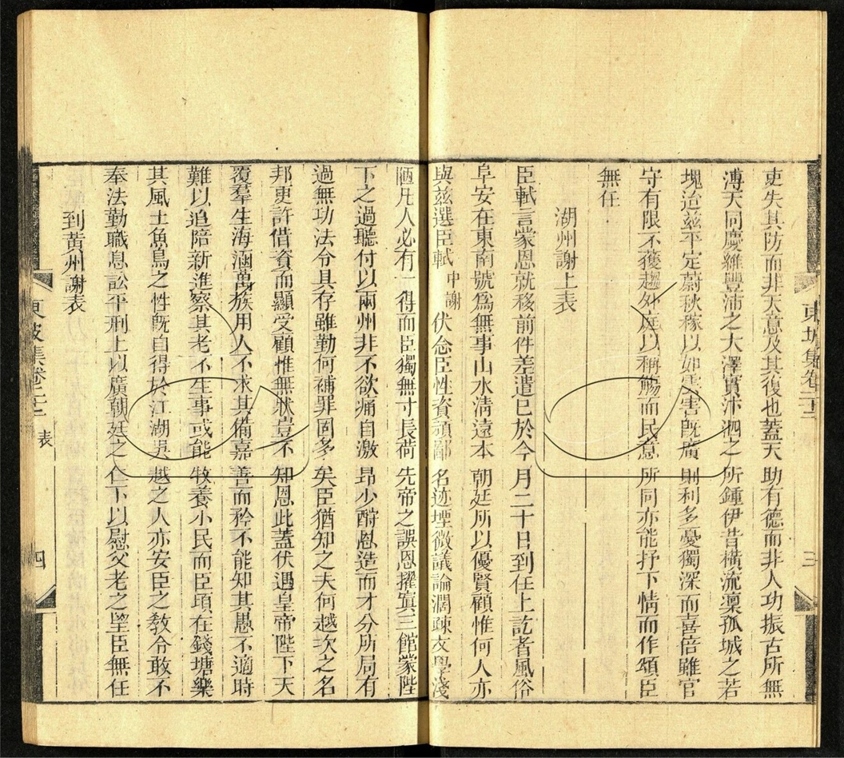 吏失其防而非天意及其復也蓋天助有德而非人功振古所無
溥天同慶維豐沛之大澤實汴泗之所鍾伊昔橫流凜孤城之若
塊迨茲平定蔚秋稼以如雲害既廣則利多憂獨深而喜倍雖官
守有限不獲趨外庭以稱觴而民意所同亦能抒下情而作頌臣
無任
湖州謝上表
臣軾言蒙恩就移前件差遣已於今月二十日到任上訖者風俗
阜安在東南號為無事山水清遠本朝廷所以優賢顧惟何人亦
與茲選臣軾中謝伏念臣性資頑鄙名迹堙微議論濶疎文學淺
陋凡人必有一得而臣獨無寸長荷先帝之誤恩擢寘三館蒙陛
下之過聽付以兩州非不欲痛自激昂少酧恩造而才分所局有
過無功法令具存雖勤何補罪固多矣臣猶知之夫何越次之名
邦更許借資而顯受顧惟無狀豈不知恩此蓋伏遇皇帝陛下天
覆羣生海涵萬族用人不求其備嘉善而矜不能知其愚不適時
難以追陪新進察其老不生事或能牧養小民而臣頃在錢塘樂
其風土魚鳥之性既自得於江湖吳越之人亦安臣之教令敢不
奉法勤職息訟平刑上以廣朝廷之仁下以慰父老之望臣無任
到黃州謝表
東坡集卷二十二
三
東坡集卷二十二
表
四